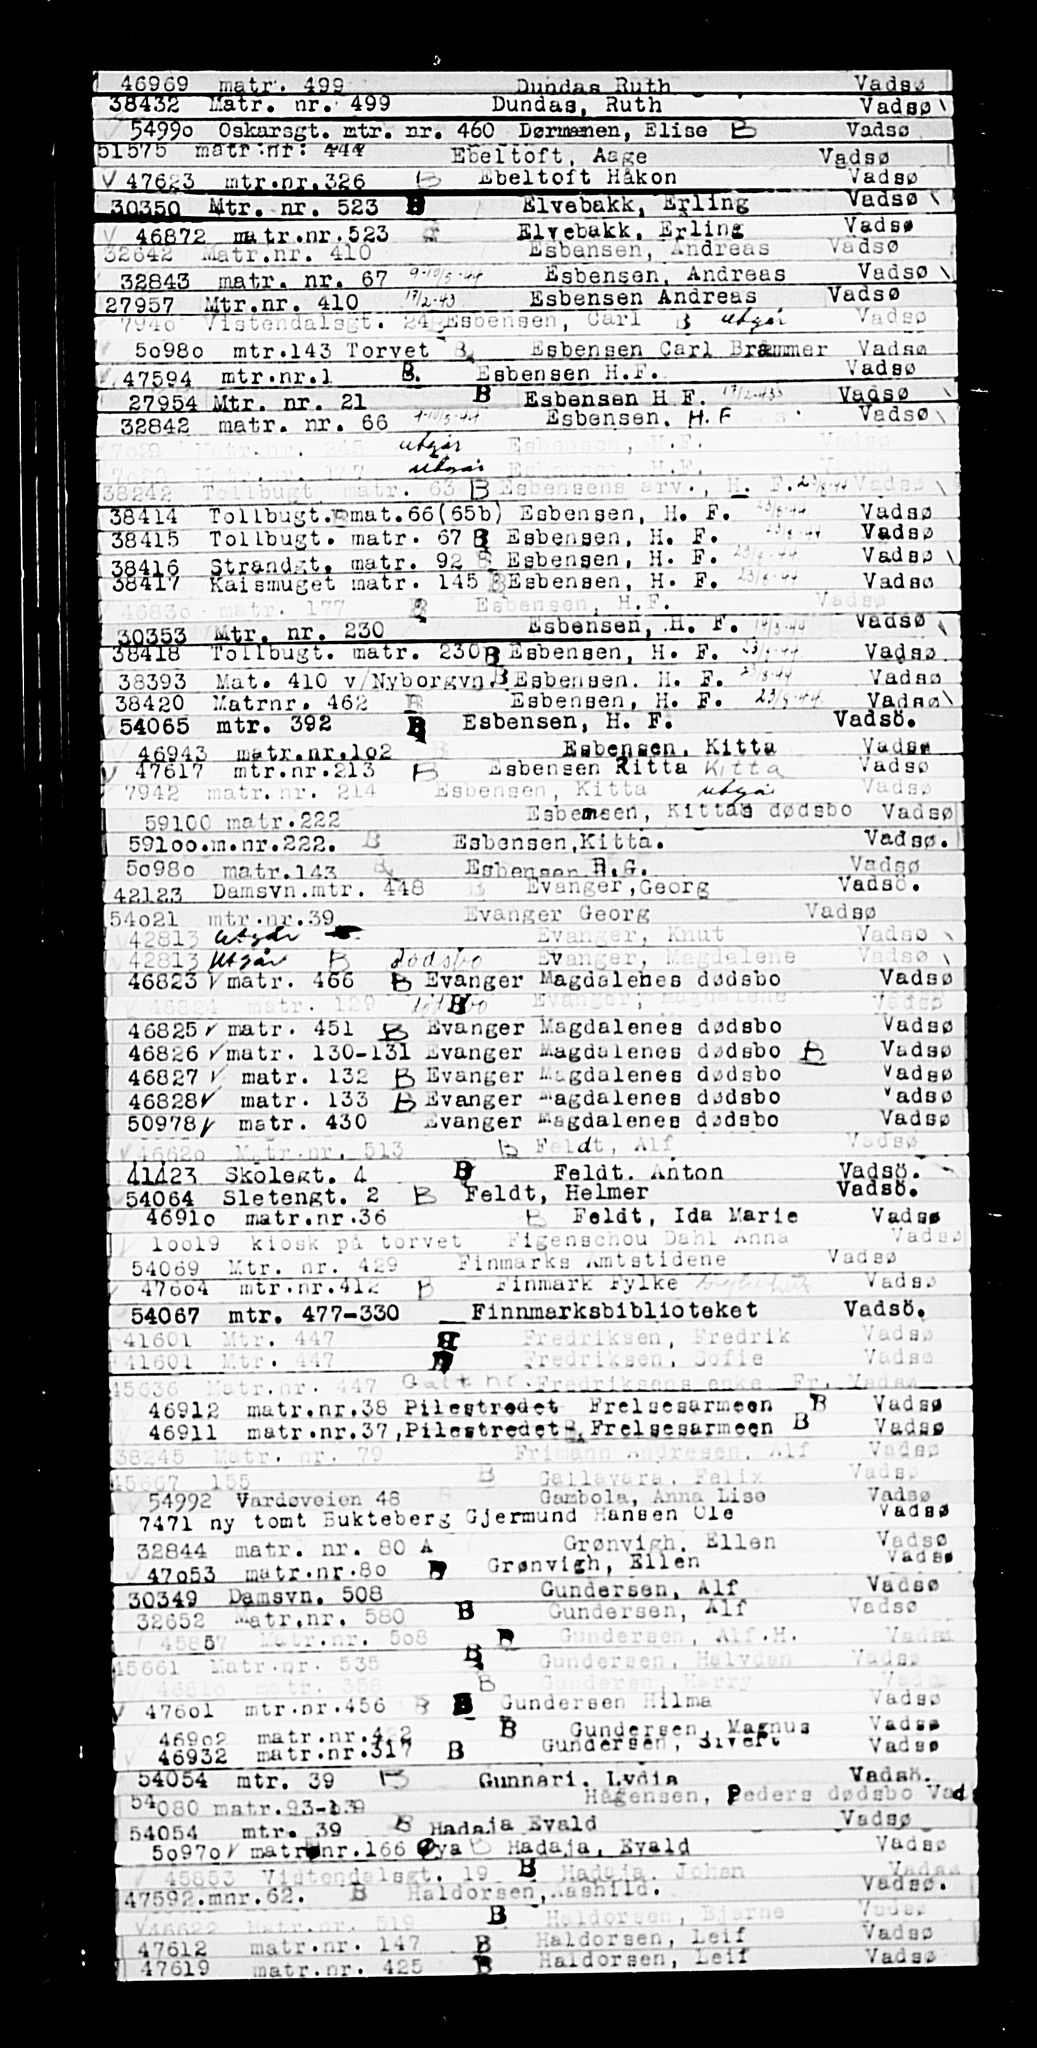 46969 matr. 499 Dundas Ruth Vadsø
38432 Matr. nr. 499 Dundas, Ruth Vadsø
54990 Oskarsgt. mtr. nr. 460 Dørmænen, Elise B Vadsø
51575 matr.nr: 444 Ebeltoft, Aage Vadsø
√ 47623 mtr.nr.326 B Ebeltoft Håkon Vadsø
30350 Mtr. nr. 523 B Elvebakk, Erling Vadsø \
√ 46872 matr.nr.523 Elvebakk, Erling Vadsø
32642 Matr.nr. 410 Esbensen, Andreas Vadsø
32843 matr. nr. 67 9-10/5-44 Esbensen, Andreas Vadsø \
27957 Mtr.nr. 410 17/2-43 Esbensen Andreas Vadsø
7940 Vistendalsgt. 24 Esbensen, Carl B utgår Vadsø
5o98o mtr.143 Torvet B Esbensen Carl Bræmmer Vadsø
47594 mtr.nr.1 B. Esbensen H.F. Vadsø
27954 Mtr. nr. 21 B Esbensen H F. Vadsø
32842 matr. nr. 66 Esbensen, H.F Vadsø
Matr.nr. 245 utgår Esbensen, H.F.
177 utgår Esbensen, H.F.
38242 Tollbugt. matr. 63 B Esbensens arv., H. F. 23/8-44 Vadsø \
38414 Tollbugt. B mat.66(65b) Esbensen, H. F. 23/8-44 Vadsø
38415 Tollbugt. matr. 67 B Esbensen, H. F. 23/8-44 Vadsø
38416 Strandgt. matr. 92 B Esbensen, H. F. 23/8-44 Vadsø \
38417 Kaismuget matr. 145 B Esbensen, H. F. 23/8-44 Vadsø
4683o matr. 177 B Esbensen, H.F. Vadsø
30353 Mtr. nr. 230 Esbensen, H. F. Vadsø \
38418 Tollbugt. matr. 230 B Esbensen, H. F. 23/8-44 Vadsø
38393 Mat. 410 v/Nyborgvn. B Esbensen. H. F. 23/8-44 Vadsø
38420 Matrnr. 462 B Esbensen, H. F. 23/8-44. Vadsø \
√ 54065 mtr. 392 B Esbensen, H. F. Vadsö.
46943 matr.nr.1o2 Esbensen, Kitta Vadsø
√ 47617 mtr.nr.213 B Esbensen Ritta Kitta Vadsø
7942 matr.nr. 214 Esbensen, Kitta utgår Vadsø
59100 matr.222 Esbensen, Kittas dødsbo Vadsø
591oo.m.nr.222. B Esbensen,Kitta. Vadsø.
5o98o matr.143 B Esbensen R.G. Vadsø
42123 Damsvn.mtr. 448 B Evanger,Georg Vadsö.
54o21 mtr.nr.39 Evanger Georg Vadsø
42813 utgår Evanger, Knut Vadsø \
42813 utgår B dödsbo Evanger, Magdalene Vadsø \
46823 √ matr. 466 B Evanger Magdalenes dødsbo Vadsø
46824 matr. 129 dödsbo B Evanger, Magdalene Vadsø
46825 √ matr. 451 B Evanger Magdalenes dødsbo Vadsø
46826 √ matr. 130-131 Evanger Magdalenes dødsbo B Vadsø
46827 √ matr. 132 B Evanger Magdalenes dødsbo Vadsø
46828 √ matr. 133 B Evanger Magdalenes dødsbo Vadsø
50978 √ matr. 430 Evanger Magdalenes dødsbo Vadsø
√ 4662o Matr.nr. 513 B Feldt, Alf Vadsø
41423 Skolegt. 4 B Feldt. Anton Vadsö.
54064 Sletengt. 2 B Feldt, Helmer Vadsö.
4691o matr.nr.36 B Feldt, Ida Marie Vadsø
loo19 kiosk på torvet Figenschou Dahl Anna Vadsø
54069 Mtr. nr. 429 Finmarks Amtstidene Vadsø
476o4 mtr.nr.412 B Finmark Fylke Vadsø
54067 mtr. 477-330 Finnmarksbiblioteket Vadsö.
41601 Mtr. 447 B Fredriksen, Fredrik Vadsø
41601 Mtr. 447 B Fredriksen, Sofie Vadsø
45636 Matr.nr. 447 Galt nr. Fredriksens enke, Fr. Vadsø
46912 matr.nr.38 Pilestredet Frelsesarmeen B Vadsø
46911 matr.nr.37,Pilestredet B. Frelsesarmeen B Vadsø
38245 Matr. nr. 79 Frimann Andresen, Alf Vadsø
45667 155 B Gallavara, Felix Vadsø
54992 Vardøveien 48 Gambola, Anna Lise Vadsø
7471 ny tomt Bukteberg Gjermund Hansen Ole Vadsø
32844 matr. nr. 80 A Grønvigh, Ellen Vadsø
47o53 matr.nr.8o B Grønvigh, Ellen Vadsø
30349 Damsvn. 508 Gundersen, Alf Vadsø
32652 Matr.nr. 580 B Gundersen, Alf Vadsø
45857 Matr.nr. 5o8 B Gundersen, Alf.H. Vadsø
45661 Matr.nr. 535 B Gundersen, Halvdan Vadsø
matr. 358 B Gundersen, Harry Vadsø
√ 476o1 mtr.nr.456 B B Gundersen Hilma Vadsø
469o2 matr.nr.422 B Gundersen, Magnus Vadsø
46932 matr.nr.317 B Gundersen, Sivert Vadsø
54054 mtr. 39 B Gunnari. Lydia Vadsö.
54080 matr.93-139 Hågensen, Peders dødsbo Vadsø
54054 mtr. 39 B Hadaja Evald Vadsø
5o97o √ matr nr.166 Øya B Hadaja, Evald Vadsø
45853 Vistendalsgt. 19 B Hadaja, Johan Vadsø
47592.mnr.62. B Haldorsen,Aashild. Vadsø.
√46622 Matr.nr. 519 B Haldorsen, Bjarne Vadsø
47612 matr.nr. 147 B Haldorsen, Leif Vadsø
47619 matr.nr. 425 B Haldorsen, Leif Vadsø